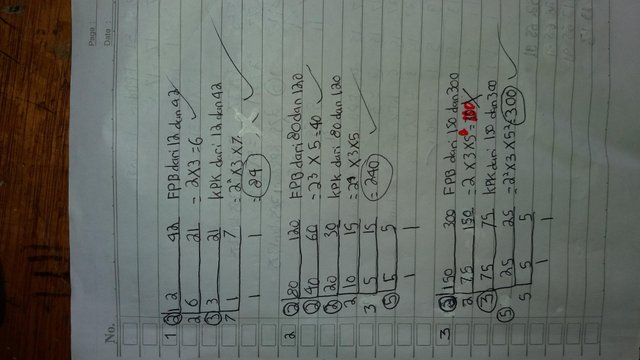 Page :
Date :
No.
1 2 12 42 FPB dari 12 dan 42
2 6 21 = 2 x 3 = 6
3 3 21 KPK dari 12 dan 42
7 1 7 = 2² x 3 x 7
1 1 = 84
2 2 80 120 FPB dari 80 dan 120
2 40 60 = 2³ x 5 = 40
2 20 30 KPK dari 80 dan 120
2 10 15 = 2⁴ x 3 x 5
3 5 15 = 240
5 5 5
1 1
3 2 150 300 FPB dari 150 dan 300
2 75 150 = 2 x 3 x 5 =
3 75 75 KPK dari 150 dan 300
5 25 25 = 2² x 3 x 5² = 300
5 5 5
1 1